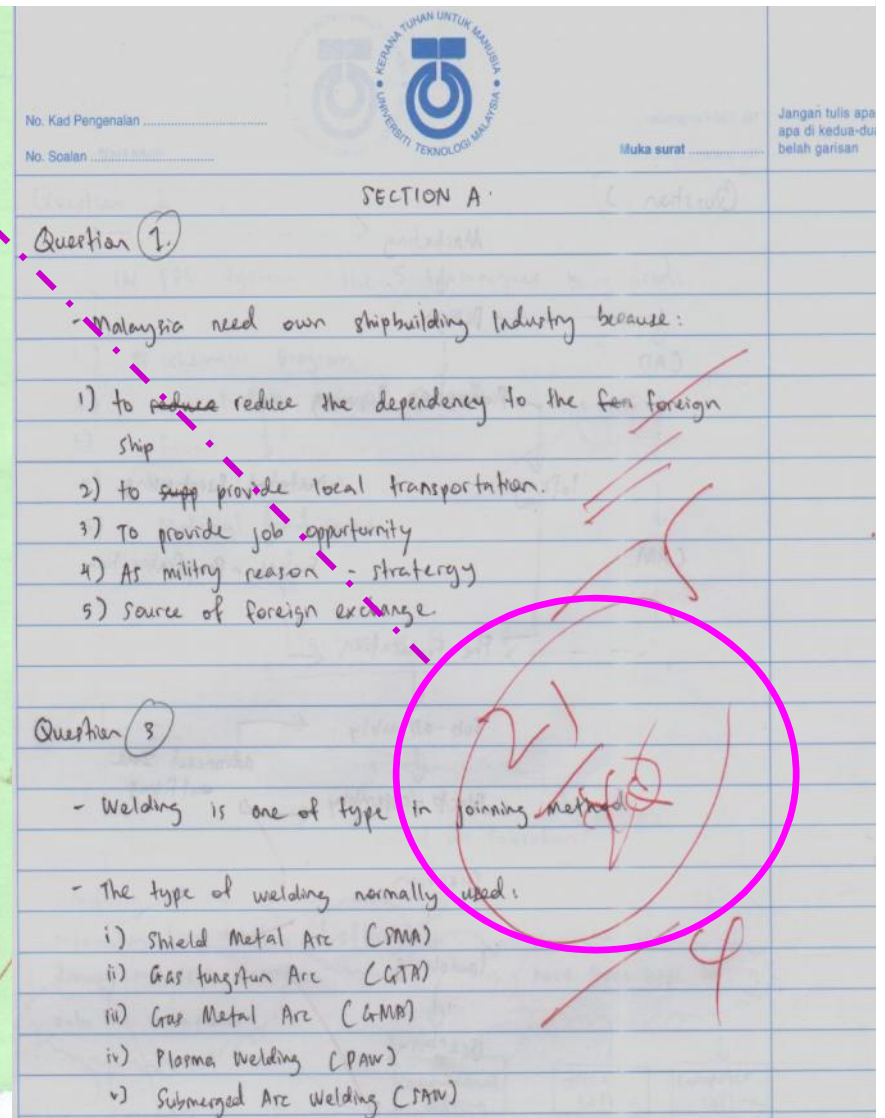 KERANA TUHAN UNTUK MANUSIA
UNIVERSITI TEKNOLOGI MALAYSIA
No. Kad Pengenalan
No. Soalan
Muka surat
Jangan tulis apa
apa di kedua-dua
belah garisan
SECTION A.
Question 1.
- Malaysia need own shipbuilding Industry because:
1) to reduce reduce the dependency to the fen foreign
ship
2) to supp provide local transportation.
3) To provide job oppurturnity
4) As militry reason - stratergy
5) Source of foreign exchange.
5
21
Question 3
- Welding is one of type in joinning method.
- The type of welding normally used:
i) Shield Metal Arc (SMA)
ii) Gas tungstun Arc (GTA)
iii) Gas Metal Arc (GMA)
iv) Plasma Welding (PAW)
v) Submerged Arc Welding (SAW)
4